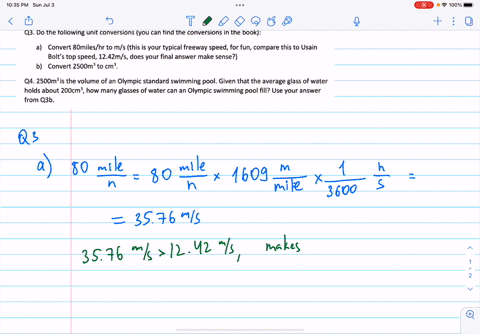 10:35 PM Sun Jul 3
100%
Q3. Do the following unit conversions (you can find the conversions in the book):
a) Convert 80miles/hr to m/s (this is your typical freeway speed, for fun, compare this to Usain
Bolt's top speed, 12.42m/s, does your final answer make sense?)
b) Convert 2500m³ to cm³.
Q4. 2500m³ is the volume of an Olympic standard swimming pool. Given that the average glass of water
holds about 200cm³, how many glasses of water can an Olympic swimming pool fill? Use your answer
from Q3b.
Q3
a) 80 mile/h = 80 mile/h × 1609 m/mile × 1/3600 h/s =
= 35.76 m/s
35.76 m/s > 12.42 m/s, makes
1
2